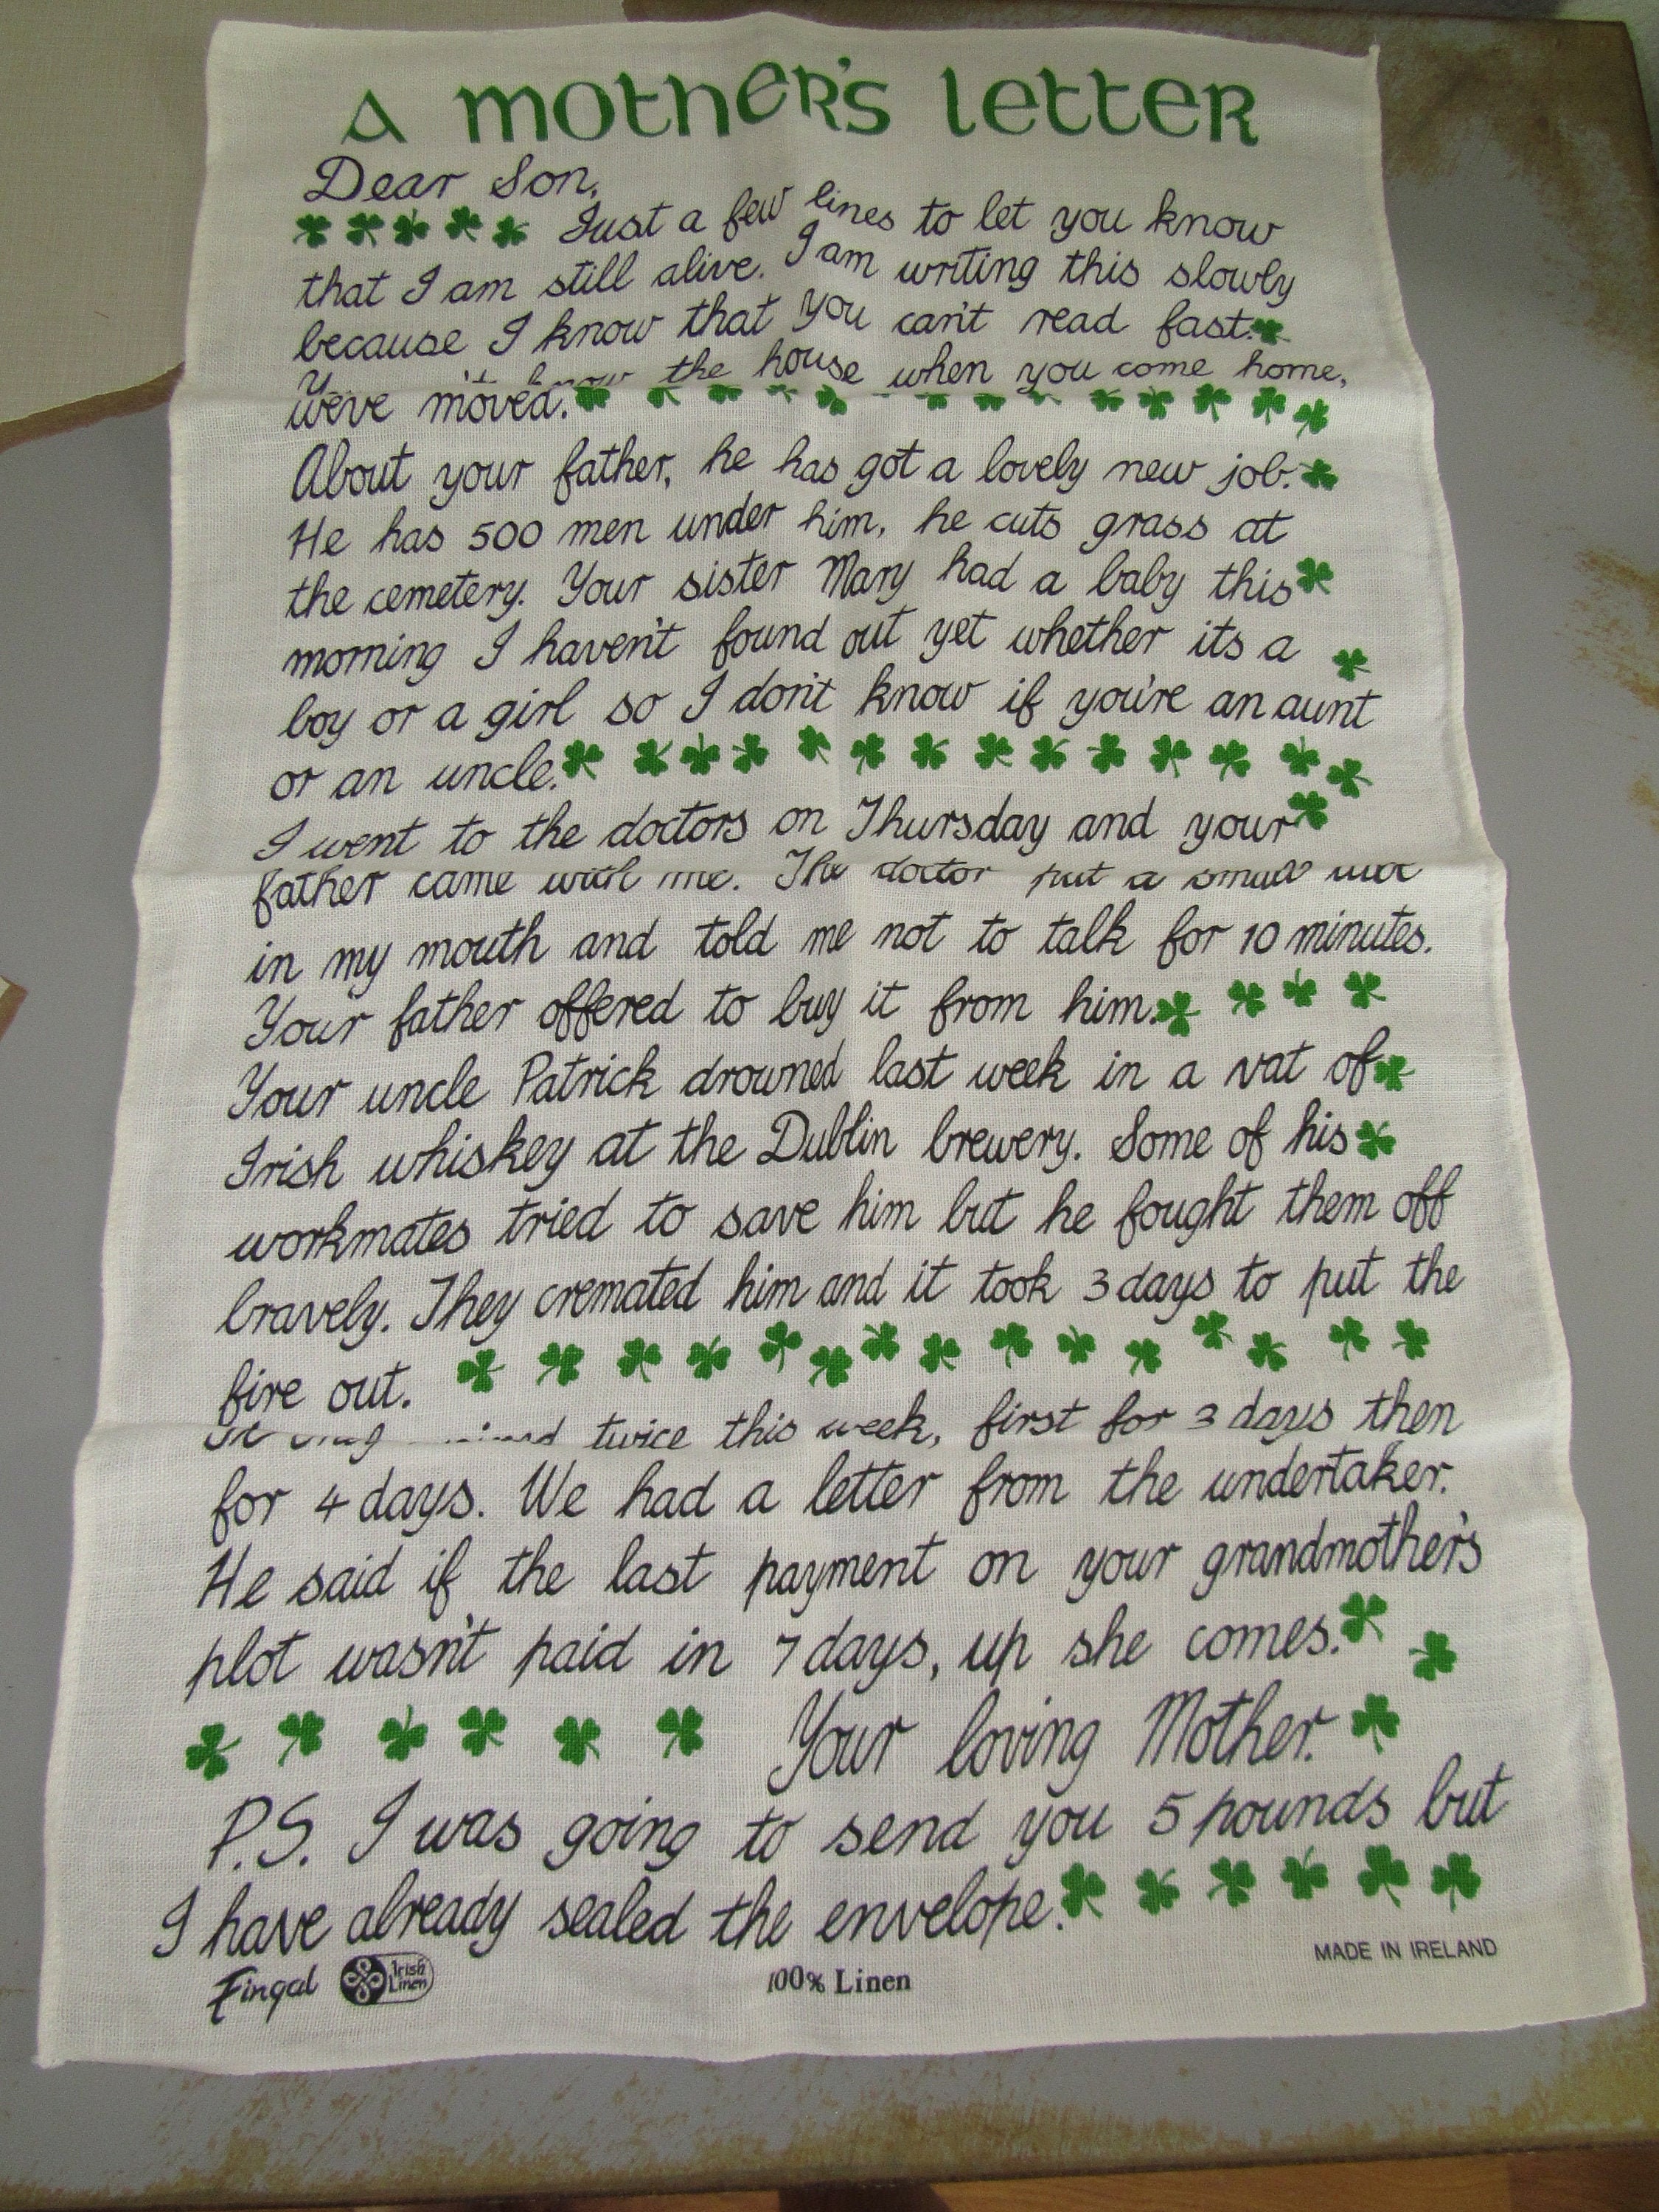 A MOTHER'S LETTER
Dear Son,
Just a few lines to let you know
that I am still alive. I am writing this slowly
because I know that you can't read fast.
the house when you come home,
we've moved.
About your father, he has got a lovely new job.
He has 500 men under him, he cuts grass at
the cemetery. Your sister Mary had a baby this
morning I haven't found out yet whether its a
boy or a girl so I don't know if you're an aunt
or an uncle.
I went to the doctors on Thursday and your
father came with me. The doctor put a small
in my mouth and told me not to talk for 10 minutes.
Your father offered to buy it from him.
Your uncle Patrick drowned last week in a vat of
Irish whiskey at the Dublin brewery. Some of his
workmates tried to save him but he fought them off
bravely. They cremated him and it took 3 days to put the
fire out.
twice this week, first for 3 days then
for 4 days. We had a letter from the undertaker.
He said if the last payment on your grandmother's
plot wasn't paid in 7 days, up she comes.
Your loving Mother.
P.S. I was going to send you 5 pounds but
I have already sealed the envelope.
MADE IN IRELAND
Fingal Irish Linen 100% Linen